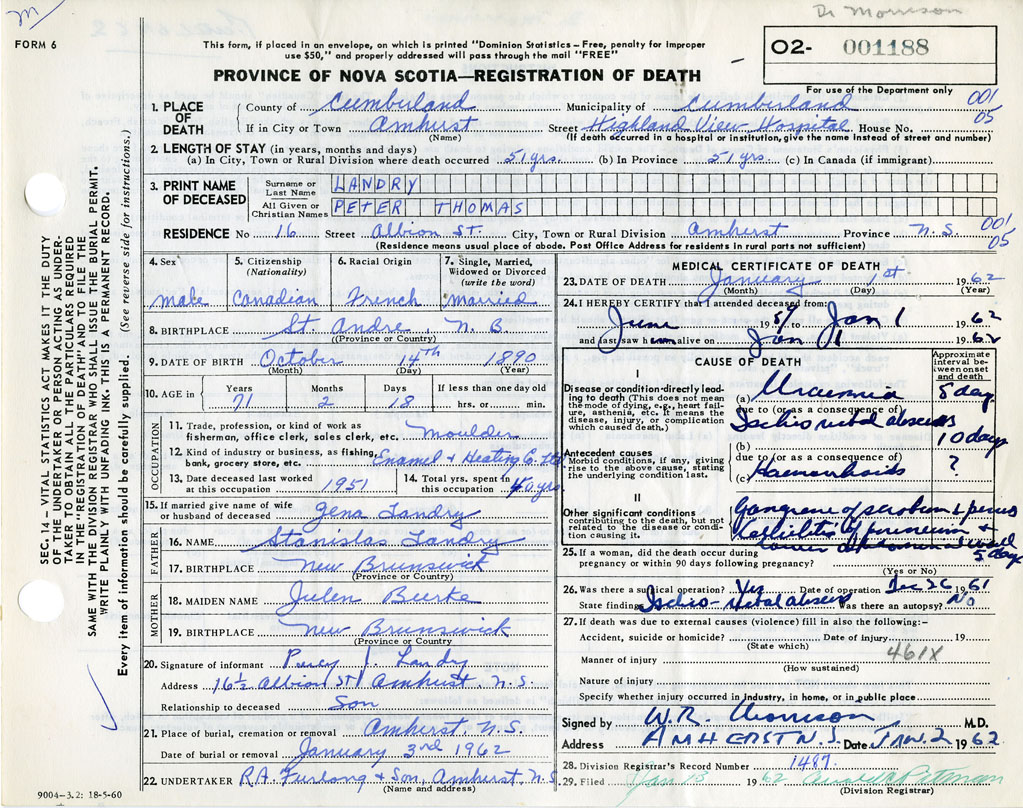 M
Dr Morrison
FORM 6
This form, if placed in an envelope, on which is printed "Dominion Statistics – Free, penalty for improper
use $50," and properly addressed will pass through the mail "FREE"
O2- 001188
PROVINCE OF NOVA SCOTIA—REGISTRATION OF DEATH
For use of the Department only
001
05
1. PLACE OF DEATH
County of Cumberland Municipality of Cumberland
If in City or Town Amherst Street Highland View Hospital House No.
(Name) (If death occurred in hospital or institution, give the name instead of street and number)
2. LENGTH OF STAY (in years, months and days)
(a) In City, Town or Rural Division where death occurred 51 yrs. (b) In Province 51 yrs. (c) In Canada (if immigrant)
3. PRINT NAME OF DECEASED
Surname or Last Name LANDRY
All Given or Christian Names PETER THOMAS
RESIDENCE No 16 Street Albion St. City, Town or Rural Division Amherst Province N.S.
001
05
(Residence means usual place of abode. Post Office Address for residents in rural parts not sufficient)
4. Sex male
5. Citizenship (Nationality) Canadian
6. Racial Origin French
7. Single, Married, Widowed or Divorced (write the word) married
8. BIRTHPLACE St. Andre, N.B.
(Province or Country)
9. DATE OF BIRTH October 14th 1890
(Month) (Day) (Year)
10. AGE in Years 71 Months 2 Days 18 If less than one day old hrs. or min.
OCCUPATION
11. Trade, profession, or kind of work as
fisherman, office clerk, sales clerk, etc. Moulder
12. Kind of industry or business, as fishing,
bank, grocery store, etc. Enamel & Heating Co. Ltd
13. Date deceased last worked at this occupation 1951
14. Total yrs. spent in this occupation 40 yrs
15. If married give name of wife
or husband of deceased Landry
FATHER
16. NAME Stanislas Landry
17. BIRTHPLACE New Brunswick
(Province or Country)
MOTHER
18. MAIDEN NAME Burke
19. BIRTHPLACE New Brunswick
(Province or Country)
20. Signature of informant Percy J. Landry
Address 16½ Albion St Amherst, N.S.
Relationship to deceased Son
21. Place of burial, cremation or removal Amherst, N.S.
Date of burial or removal January 3rd 1962
22. UNDERTAKER R.A. Furlong & Son, Amherst, N.S.
(Name and address)
MEDICAL CERTIFICATE OF DEATH
23. DATE OF DEATH January 1st 1962
(Month) (Day) (Year)
24. I HEREBY CERTIFY that I attended deceased from:
June 1959 to Jan 1 1962
and last saw h alive on Jan 1 1962
CAUSE OF DEATH
Approximate interval between onset and death
I
Disease or condition directly leading to death (This does not mean
the mode of dying, e.g., heart failure, asthenia, etc. It means the
disease, injury, or complication
which caused death.)
(a) Uraemia 5 days
due to (or as a consequence of)
Ischio rectal abscess
(b) 10 days
Antecedent causes
Morbid conditions, if any, giving
rise to the above cause, stating
the underlying condition last.
due to (or as a consequence of)
(c) Haemorrhoids ?
II
Other significant conditions
contributing to the death, but not
related to the disease or condition causing it.
Gangrene of scrotum & penis
Cellulitis of perineum &
lower abdominal wall
5 days
25. If a woman, did the death occur during
pregnancy or within 90 days following pregnancy?
(Yes or No)
26. Was there a surgical operation? Yes Date of operation Dec 26 1961
State findings Ischio-rectal abscess Was there an autopsy? No
27. If death was due to external causes (violence) fill in also the following:—
Accident, suicide or homicide? Date of injury 19
(State which)
461X
Manner of injury
(How sustained)
Nature of injury
Specify whether injury occurred in Industry, in home, or in public place
Signed by W.R. Morrison M.D.
Address AMHERST N.S. Date JAN. 2 1962
28. Division Registrar's Record Number 1487
29. Filed Jan 13 1962
(Division Registrar)
SEC. 14 – VITAL STATISTICS ACT MAKES IT THE DUTY
OF THE UNDERTAKER OR PERSON ACTING AS UNDERTAKER "TO OBTAIN ALL THE PARTICULARS REQUIRED
IN THE "REGISTRATION OF DEATH" AND TO FILE THE
SAME WITH THE DIVISION REGISTRAR WHO SHALL ISSUE THE BURIAL PERMIT.
WRITE PLAINLY WITH UNFADING INK. THIS IS A PERMANENT RECORD.
Every item of information should be carefully supplied. (See reverse side for instructions.)
9004–3.2: 18-5-60